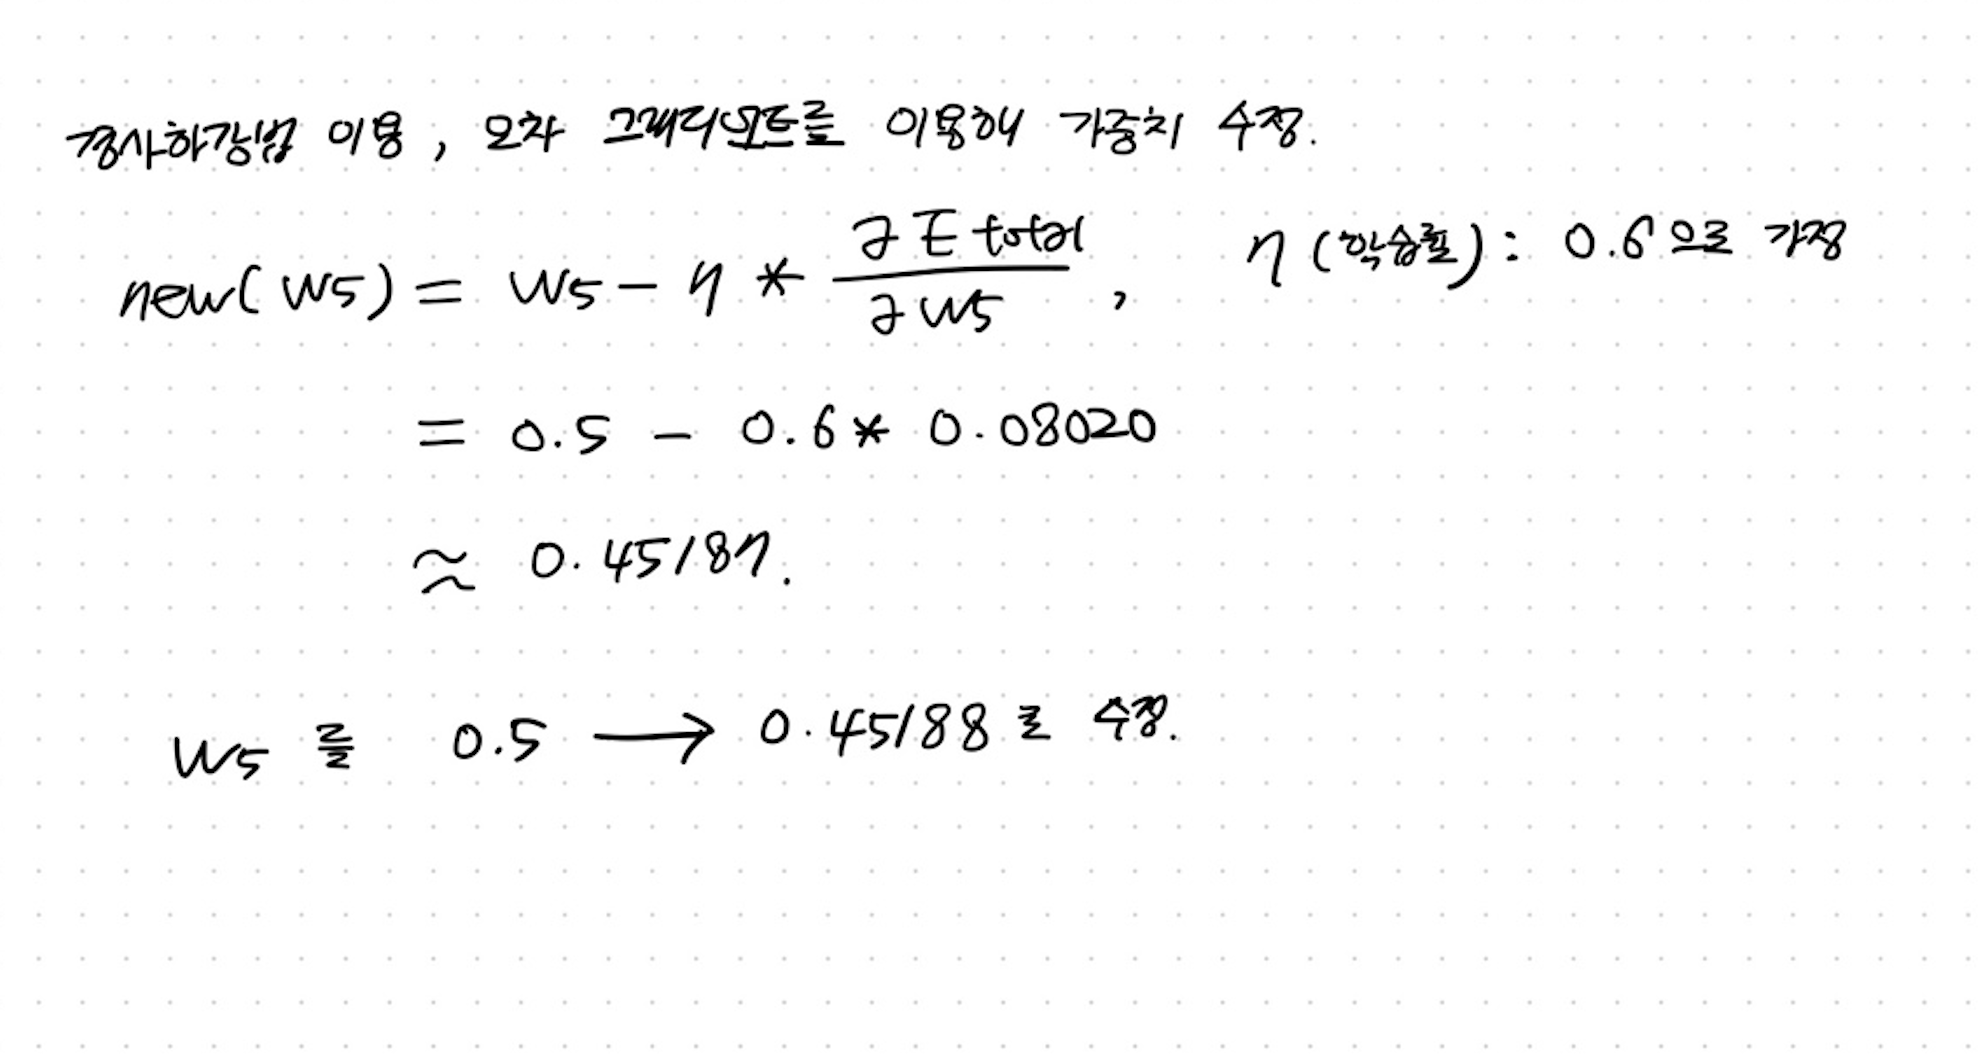 경사하강법 이용, 오차 그래디언트를 이용해 가중치 수정.
new(w5) = w5 - η * ∂E total / ∂w5 , η (학습률) : 0.6으로 가정
= 0.5 - 0.6 * 0.08020
≈ 0.45187.
w5 를 0.5 → 0.45188 로 수정.